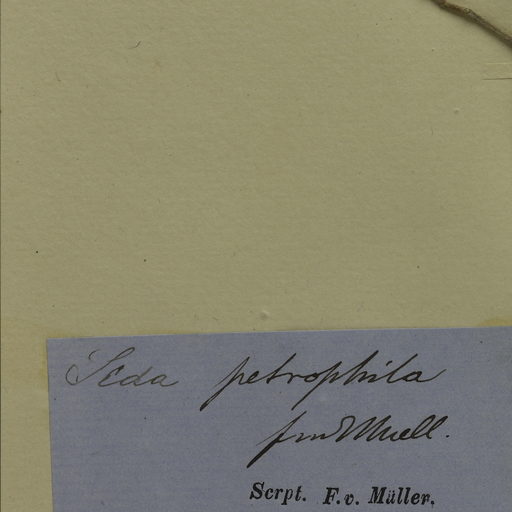 Sida petrophila
fvMuell.
Scrpt. F. v. Müller.